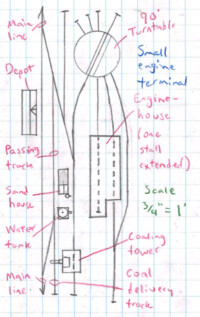 Main
line
90'
Turntable
Small
engine
terminal
Depot
Engine-
house
(one
stall
extended)
Passing
track
Sand
house
Scale
3/4" = 1'
Water
tank
Coaling
tower
Main
line
Coal
delivery
track